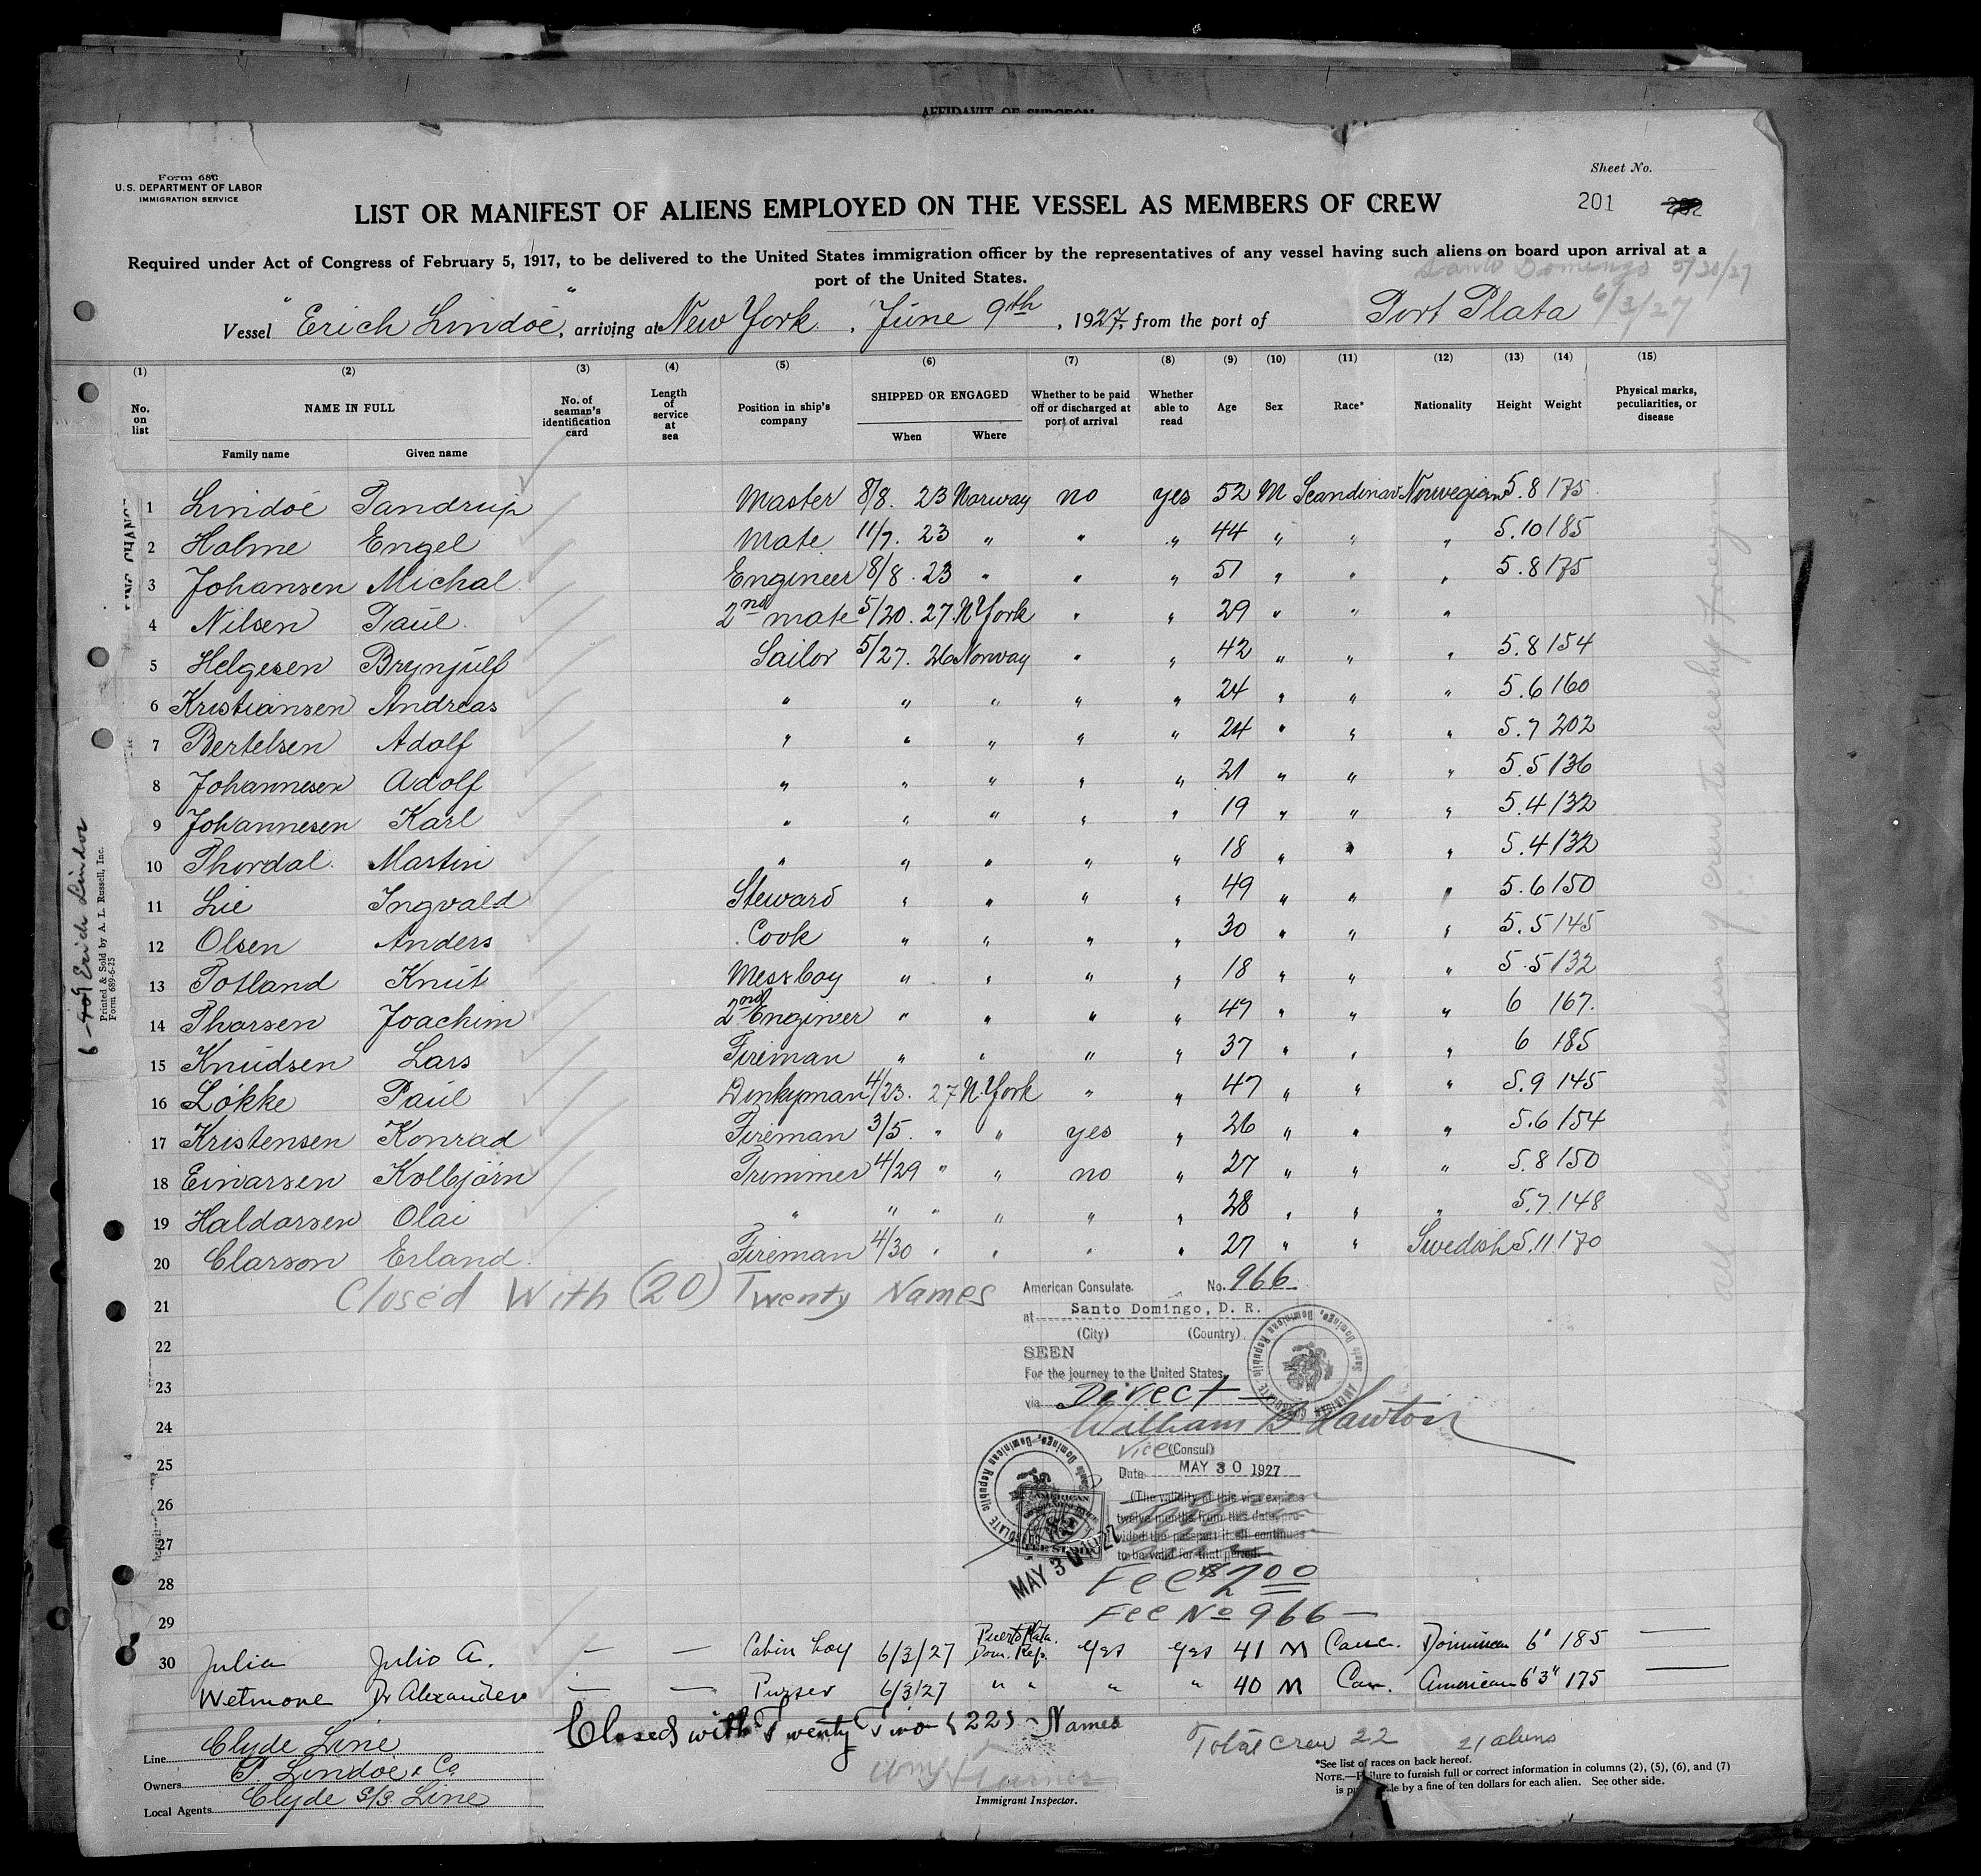 AFFIDAVIT OF SURGEON
Form 680
U.S. DEPARTMENT OF LABOR
IMMIGRATION SERVICE
Sheet No.
201
LIST OR MANIFEST OF ALIENS EMPLOYED ON THE VESSEL AS MEMBERS OF CREW
Required under Act of Congress of February 5, 1917, to be delivered to the United States immigration officer by the representatives of any vessel having such aliens on board upon arrival at a
port of the United States.
Santo Domingo 5/30/27
Vessel "Erich Lindoë", arriving at New York, June 9th, 1927, from the port of Port Plata 6/3/27
(1) (2) (3) (4) (5) (6) (7) (8) (9) (10) (11) (12) (13) (14) (15)
No. on list NAME IN FULL Family name Given name No. of seaman's identification card Length of service at sea Position in ship's company SHIPPED OR ENGAGED When Where Whether to be paid off or discharged at port of arrival Whether able to read Age Sex Race* Nationality Height Weight Physical marks, peculiarities, or disease
1 Lindoë Tandrup Master 8/8. 23 Norway no yes 52 M Scandinav Norwegian 5.8 175
2 Holme Engel Mate 11/7. 23 " " " 44 " " " 5.10 185
3 Johansen Michal Engineer 8/8. 23 " " " 51 " " " 5.8 175
4 Nilsen Paul 2nd mate 5/20. 27 N York " " 29 " " "
5 Helgesen Brynjulf Sailor 5/27. 26 Norway " " 42 " " " 5.8 154
6 Kristiansen Andreas " " " " " 24 " " " 5.6 160
7 Bertelsen Adolf " " " " " 24 " " " 5.7 202
8 Johannesen Adolf " " " " " 21 " " " 5.5 136
9 Johannesen Karl " " " " " 19 " " " 5.4 132
10 Thordal Martin " " " " " 18 " " " 5.4 132
11 Lie Ingvald Steward " " " " 49 " " " 5.6 150
12 Olsen Anders Cook " " " " 30 " " " 5.5 145
13 Totland Knut Messboy " " " " 18 " " " 5.5 132
14 Tharsen Joachim 2nd Engineer " " " " 47 " " " 6 167.
15 Knudsen Lars Fireman " " " " 37 " " " 6 185
16 Lökke Paul Donkyman 4/23. 27 N. York " " 47 " " " 5.9 145
17 Kristensen Konrad Fireman 3/5. " " yes " 26 " " " 5.6 154
18 Einarsen Kolbjörn Trimmer 4/29 " " no " 27 " " " 5.8 150
19 Haldorsen Olai " " " " " " 28 " " " 5.7 148
20 Clarson Erland Fireman 4/30 " " " " 27 " " Swedish 5.11 170
21 Closed With (20) Twenty Names
22
23
24
25
26
27
28
29
American Consulate. No. 966
at Santo Domingo, D. R.
(City) (Country)
SEEN
For the journey to the United States
via Direct
William B Lawton
Vice (Consul)
Date MAY 30 1927
(The validity of this visa expires
twelve months from this date, pro-
vided the passport itself continues
to be valid for that period.
MAY 30 1927
Fee $2.00
Fee No 966 —
30 Julia Julio A. — — Cabin boy 6/3/27 Puerto Plata. Dom. Rep. Yes Yes 41 M Cauc. Dominican 6' 185 —
Wetmore Dr Alexander — — Purser 6/3/27 " " " " 40 M Cau. American 6'3" 175 —
Closed with Twenty Two (22) Names
Total Crew 22 21 aliens
Line Clyde Line
Owners P Lindoë & Co
Local Agents Clyde S/S. Line
Immigrant Inspector.
*See list of races on back hereof.
NOTE.—Failure to furnish full or correct information in columns (2), (5), (6), and (7)
is by a fine of ten dollars for each alien. See other side.
Erich Lindoe
Printed & Sold by A. L. Russell, Inc.
Form 689-6-25
all alien members of crew to reship foreign